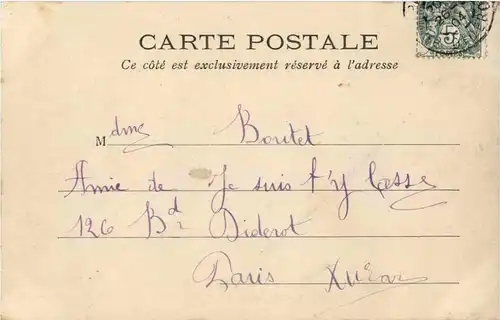 CARTE POSTALE
Ce côté est exclusivement réservé à l'adresse
Mdme Boutet
Amie de Je suis t'y Casse
126 Bd Diderot
Paris
5